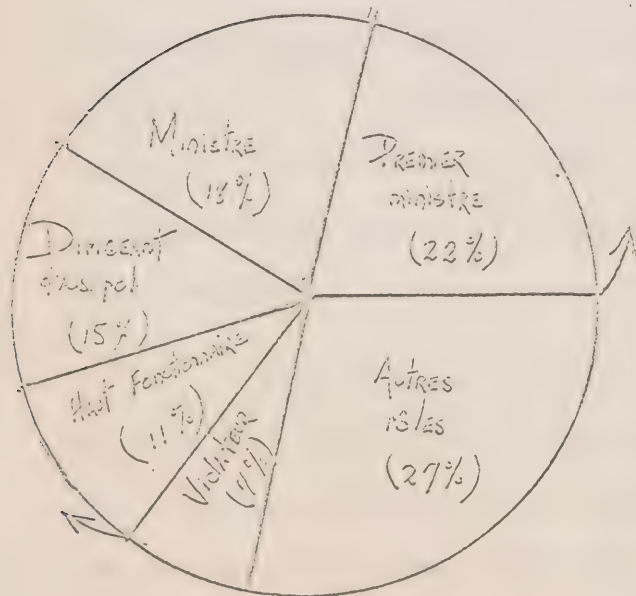 Ministre
(18%)
Premier
ministre
(22%)
Dirigeant
pol.
(15%)
Haut Fonctionnaire
(11%)
Violateur
(7%)
Autres
rôles
(27%)